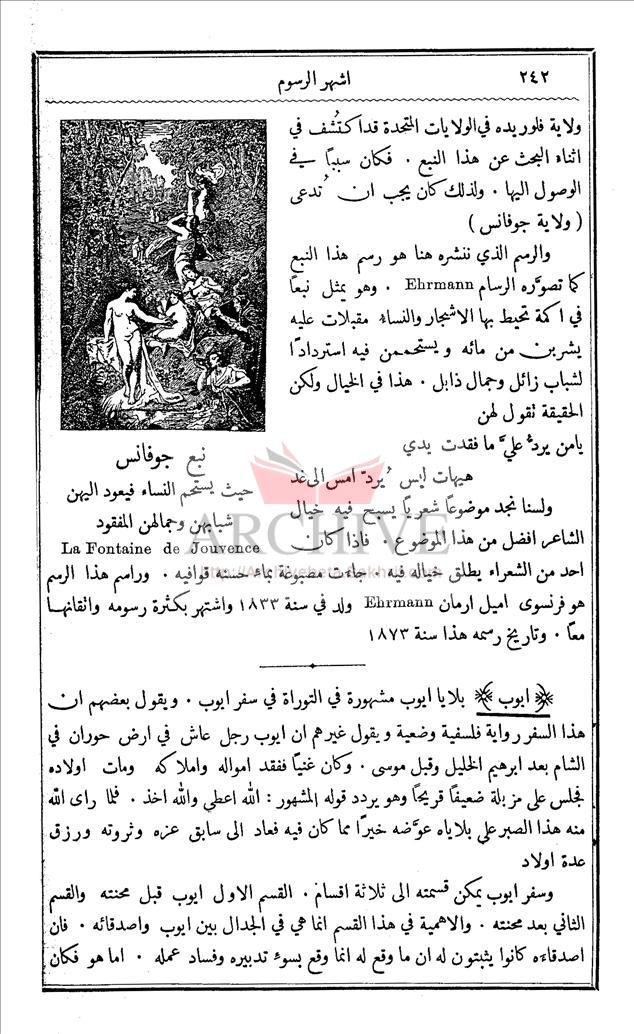 ٢٤٢
اشهر الرسوم
ولاية فلوريده في الولايات المتحدة قد اكتُشف في
اثناء البحث عن هذا النبع . فكان سبباً في
الوصول اليها . ولذلك كان يجب ان تُدعى
( ولاية جوفانس )
والرسم الذي ننشره هنا هو رسم هذا النبع
كما تصوَّره الرسام Ehrmann . وهو يمثل نبعاً
في اكمة تحيط بها الاشجار والنساء مقبلات عليه
يشربن من مائه ويستحممن فيه استرداداً
لشباب زائل وجمال ذابل . هذا في الخيال ولكن
الحقيقة تقول لهن
يا من يردُّ عليَّ ما فقدت يدي
هيهات ليس يُردّ امس الى غد
ولسنا نجد موضوعاً شعرياً يسبح فيه خيال
الشاعر افضل من هذا الموضوع . فاذا كان
نبع جوفانس
حيث يستحم النساء فيعود اليهن
شبابهن وجمالهن المفقود
La Fontaine de Jouvence
احد من الشعراء يطلق خياله فيه . جاءت مصبوغة بماء حسنه قوافيه . وراسم هذا الرسم
هو فرنسوى اميل ارمان Ehrmann ولد في سنة ١٨٣٣ واشتهر بكثرة رسومه واتقانها
معاً . وتاريخ رسمه هذا سنة ١٨٧٣
﴿ ايوب ﴾ بلايا ايوب مشهورة في التوراة في سفر ايوب . ويقول بعضهم ان
هذا السفر رواية فلسفية وضعية ويقول غيرهم ان ايوب رجل عاش في ارض حوران في
الشام بعد ابرهيم الخليل وقبل موسى . وكان غنيًّا ففقد امواله واملاكه ومات اولاده
فجلس على مزبلة ضعيفاً قريحاً وهو يردد قوله المشهور : الله اعطي والله اخذ . فلما راى الله
منه هذا الصبر على بلاياه عوَّضه خيراً مما كان فيه فعاد الى سابق عزه وثروته ورزق
عدة اولاد
وسفر ايوب يمكن قسمته الى ثلاثة اقسام . القسم الاول ايوب قبل محنته والقسم
الثاني بعد محنته . والاهمية في هذا القسم انما هي في الجدال بين ايوب واصدقائه . فان
اصدقاءه كانوا يثبتون له ان ما وقع له انما وقع بسوء تدبيره وفساد عمله . اما هو فكان
ARCHIVE